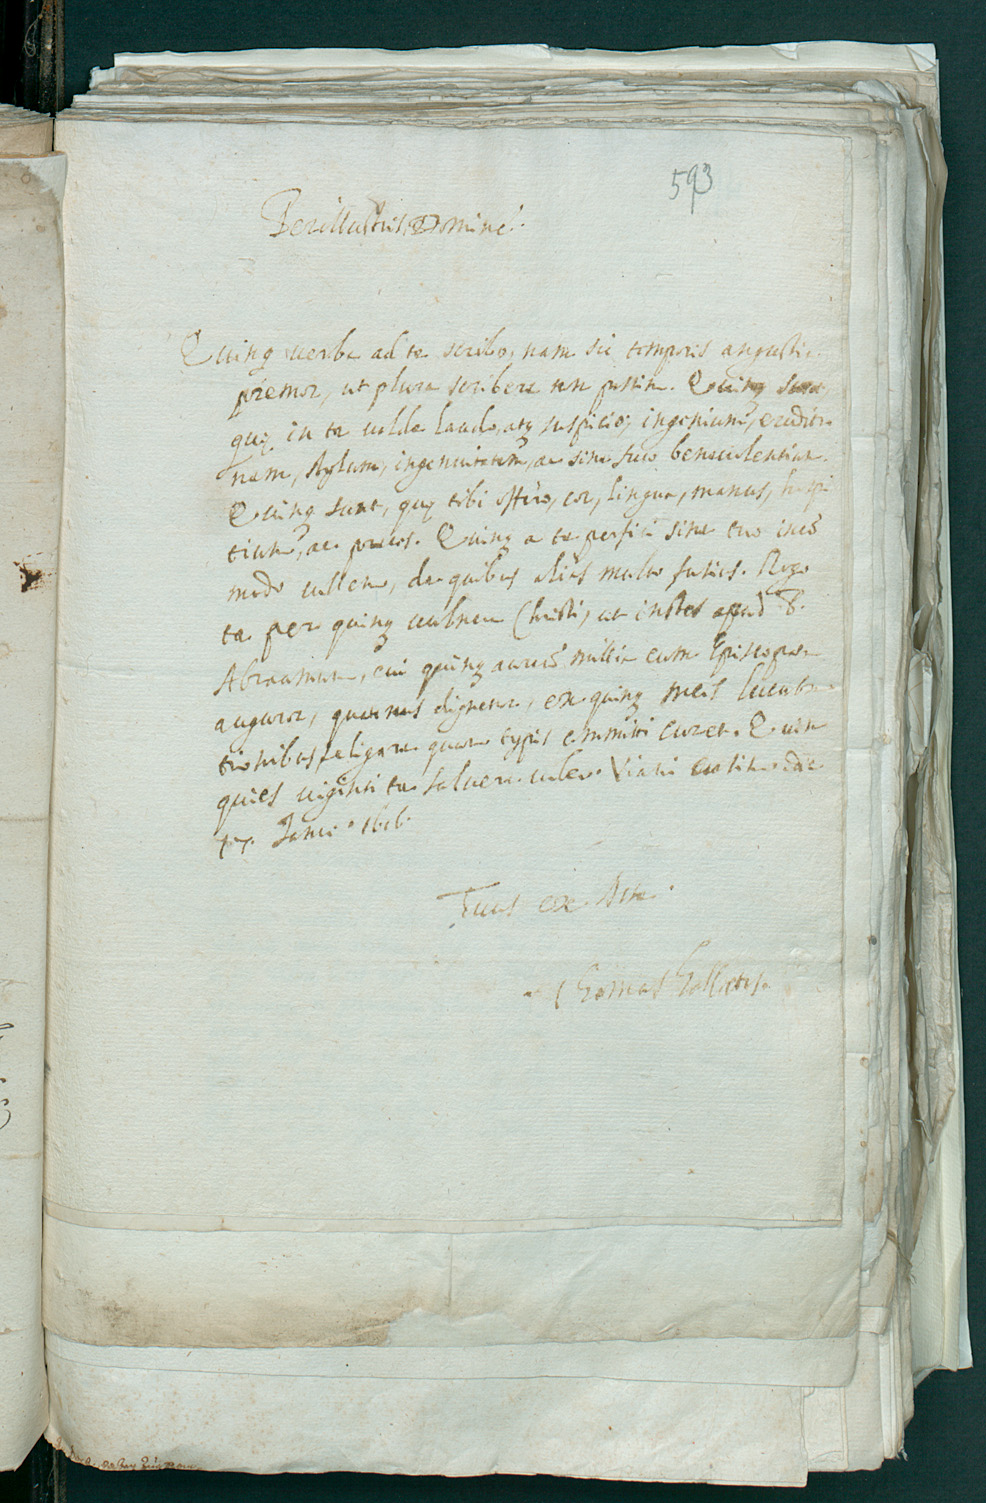 593
Perillustris Domine.
Quinq verba ad te scribo, nam sic temporis angustia
premor, ut plura scribere non possim. Quinq sunt,
quę in te valde laudo, atq suspicio, ingenium, eruditio
nem, stylum, ingenuitatem, ac sine fuco benevolentiam.
Quinq sunt, quę tibi offero, cor, lingua, manus, hospi
tium, ac preces. Quinq a te perfici sine tuo incō
modo vellem, de quibus alias multo fusius. Rogo
te per quinq vulnera Christi, ut instes apud D.
Abraamum, cui quinq aureōs millia cum Episcopatu
auguror, quatenus dignetur, ex quinq meis lucubra
tionibus seligere quam typis committi curet. Quin
quies viginti te salvere iubeo. Viani die
17. 1616.
Tuus ex Asse.
Thomas